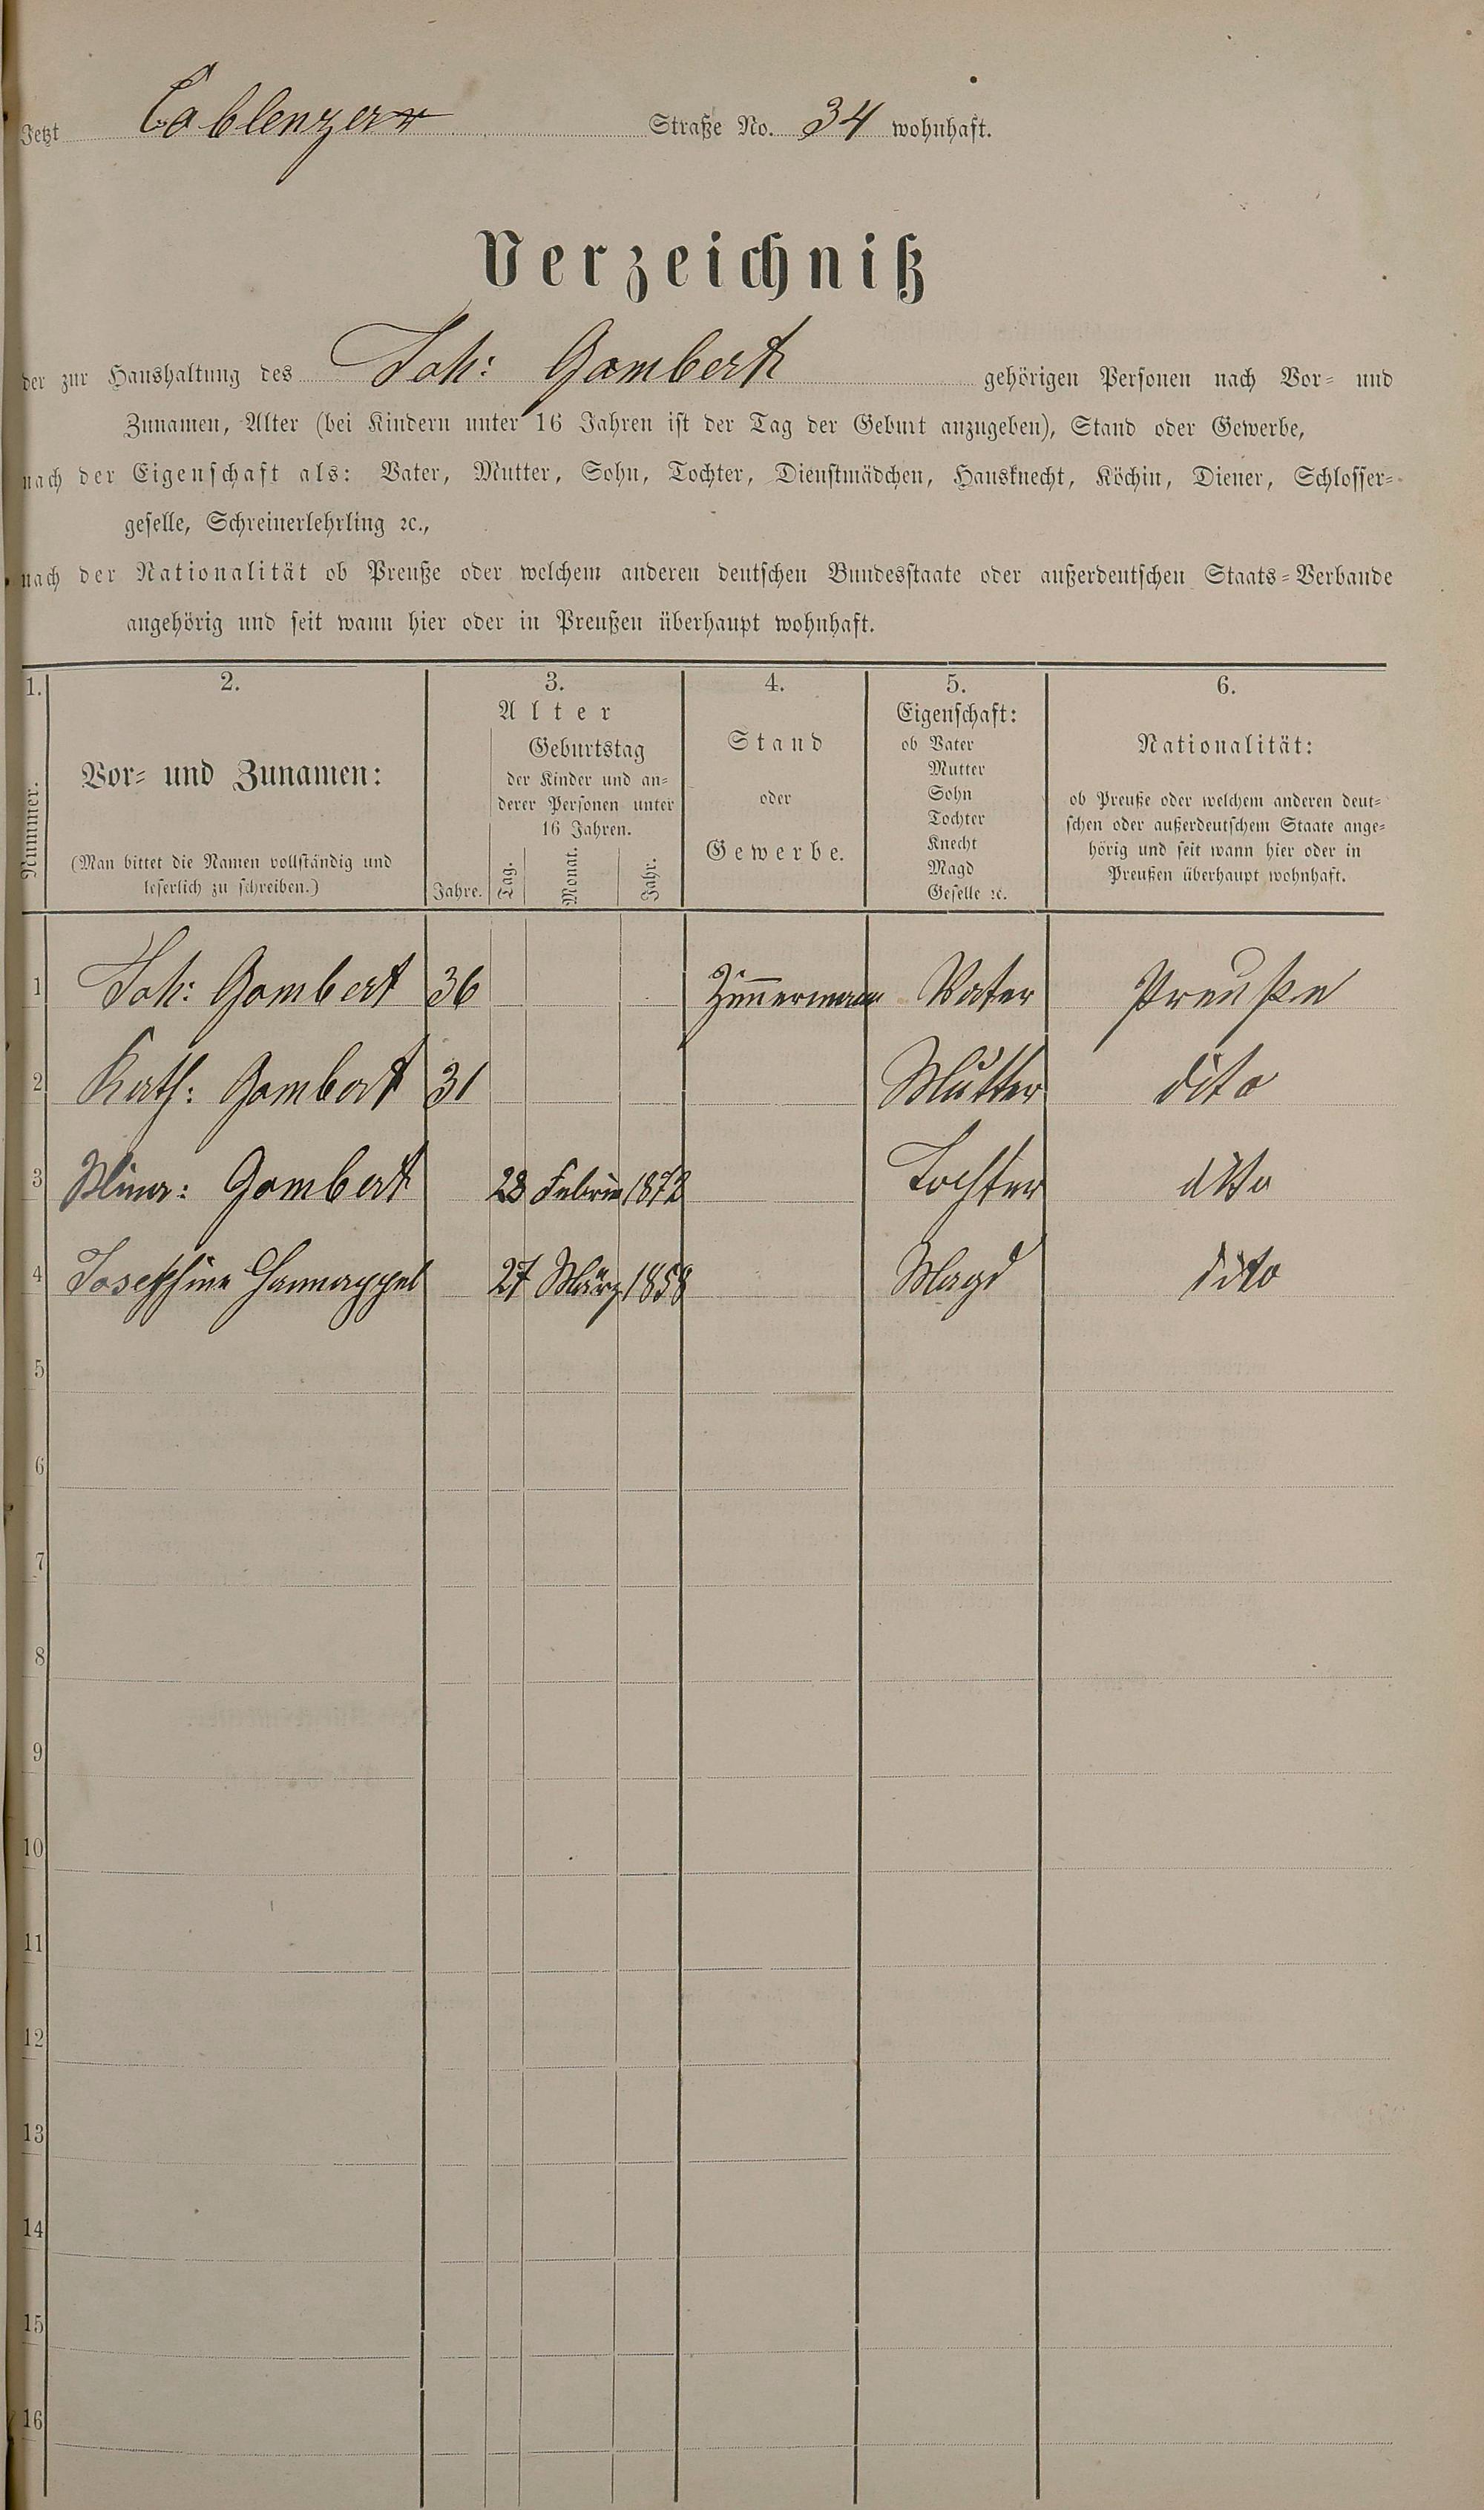 Jetzt Coblenzer Straße No. 34 wohnhaft.
Verzeichniß
der zur Haushaltung des Joh: Gombert gehörigen Personen nach Vor- und
Zunamen, Alter (bei Kindern unter 16 Jahren ist der Tag der Geburt anzugeben), Stand oder Gewerbe,
nach der Eigenschaft als: Vater, Mutter, Sohn, Tochter, Dienstmädchen, Hausknecht, Köchin, Diener, Schlosser-
geselle, Schreinerlehrling ꝛc.,
nach der Nationalität ob Preuße oder welchem anderen deutschen Bundesstaate oder außerdeutschen Staats-Verbande
angehörig und seit wann hier oder in Preußen überhaupt wohnhaft.
1.
Nummer.
2.
Vor- und Zunamen:
(Man bittet die Namen vollständig und
leserlich zu schreiben.)
3.
Alter
Jahre.
Geburtstag
der Kinder und an-
derer Personen unter
16 Jahren.
Tag.
Monat.
Jahr.
4.
Stand
oder
Gewerbe.
5.
Eigenschaft:
ob Vater
Mutter
Sohn
Tochter
Knecht
Magd
Geselle ꝛc.
6.
Nationalität:
ob Preuße oder welchem anderen deut-
schen oder außerdeutschem Staate ange-
hörig und seit wann hier oder in
Preußen überhaupt wohnhaft.
1 Joh: Gombert 36 Zimmermann Vater Preuße
2 Kath: Gombert 31 Mutter dito
3 Gombert 28 1872 Tochter dito
4 Josephine Hannappel 27 März 1858 Magd dito
5
6
7
8
9
10
11
12
13
14
15
16